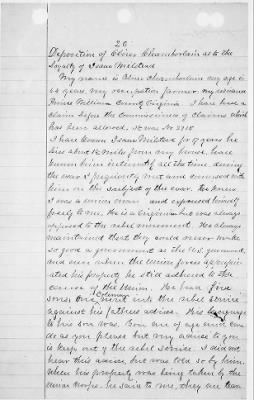 20
Deposition of Oliver Chamberlain as to the
Loyalty of Isaac Milstead
My name is Oliver Chamberlain my age is
64 years, my occupation farmer, my residence
Prince William County Virginia. I have have a
claim before the Commissioners of Claims which
has been allowed, it was No 3715
I have known Isaac Milstead for years he
lives about miles from my house, have
known him intimately all the time, during
the war I frequently met and conversed with
him on the subject of the war. He knew
I was a union man and expressed himself
freely to me. He is a Virginian but was always
opposed to the rebel movement. He always
maintained that they could never make
so good a government as the U.S. government,
and even when the Union forces appropri-
ated his property he still adhered to the
cause of the Union. He had five
sons, one went into the rebel service
against his fathers advice. His language
to his son was. You are of age and can
do as you please but my advice to you
is keep out of the rebel service. I did not
hear this advice but was told so by him.
When his property was being taken by the
union troops. he said to me, they are